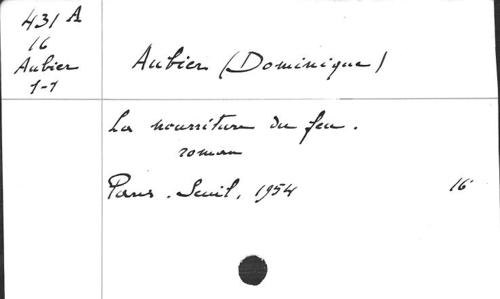 431 A
16
Aubier
1-1
Aubier (Dominique)
La nourriture du feu.
roman
Paris. Seuil, 1954
16